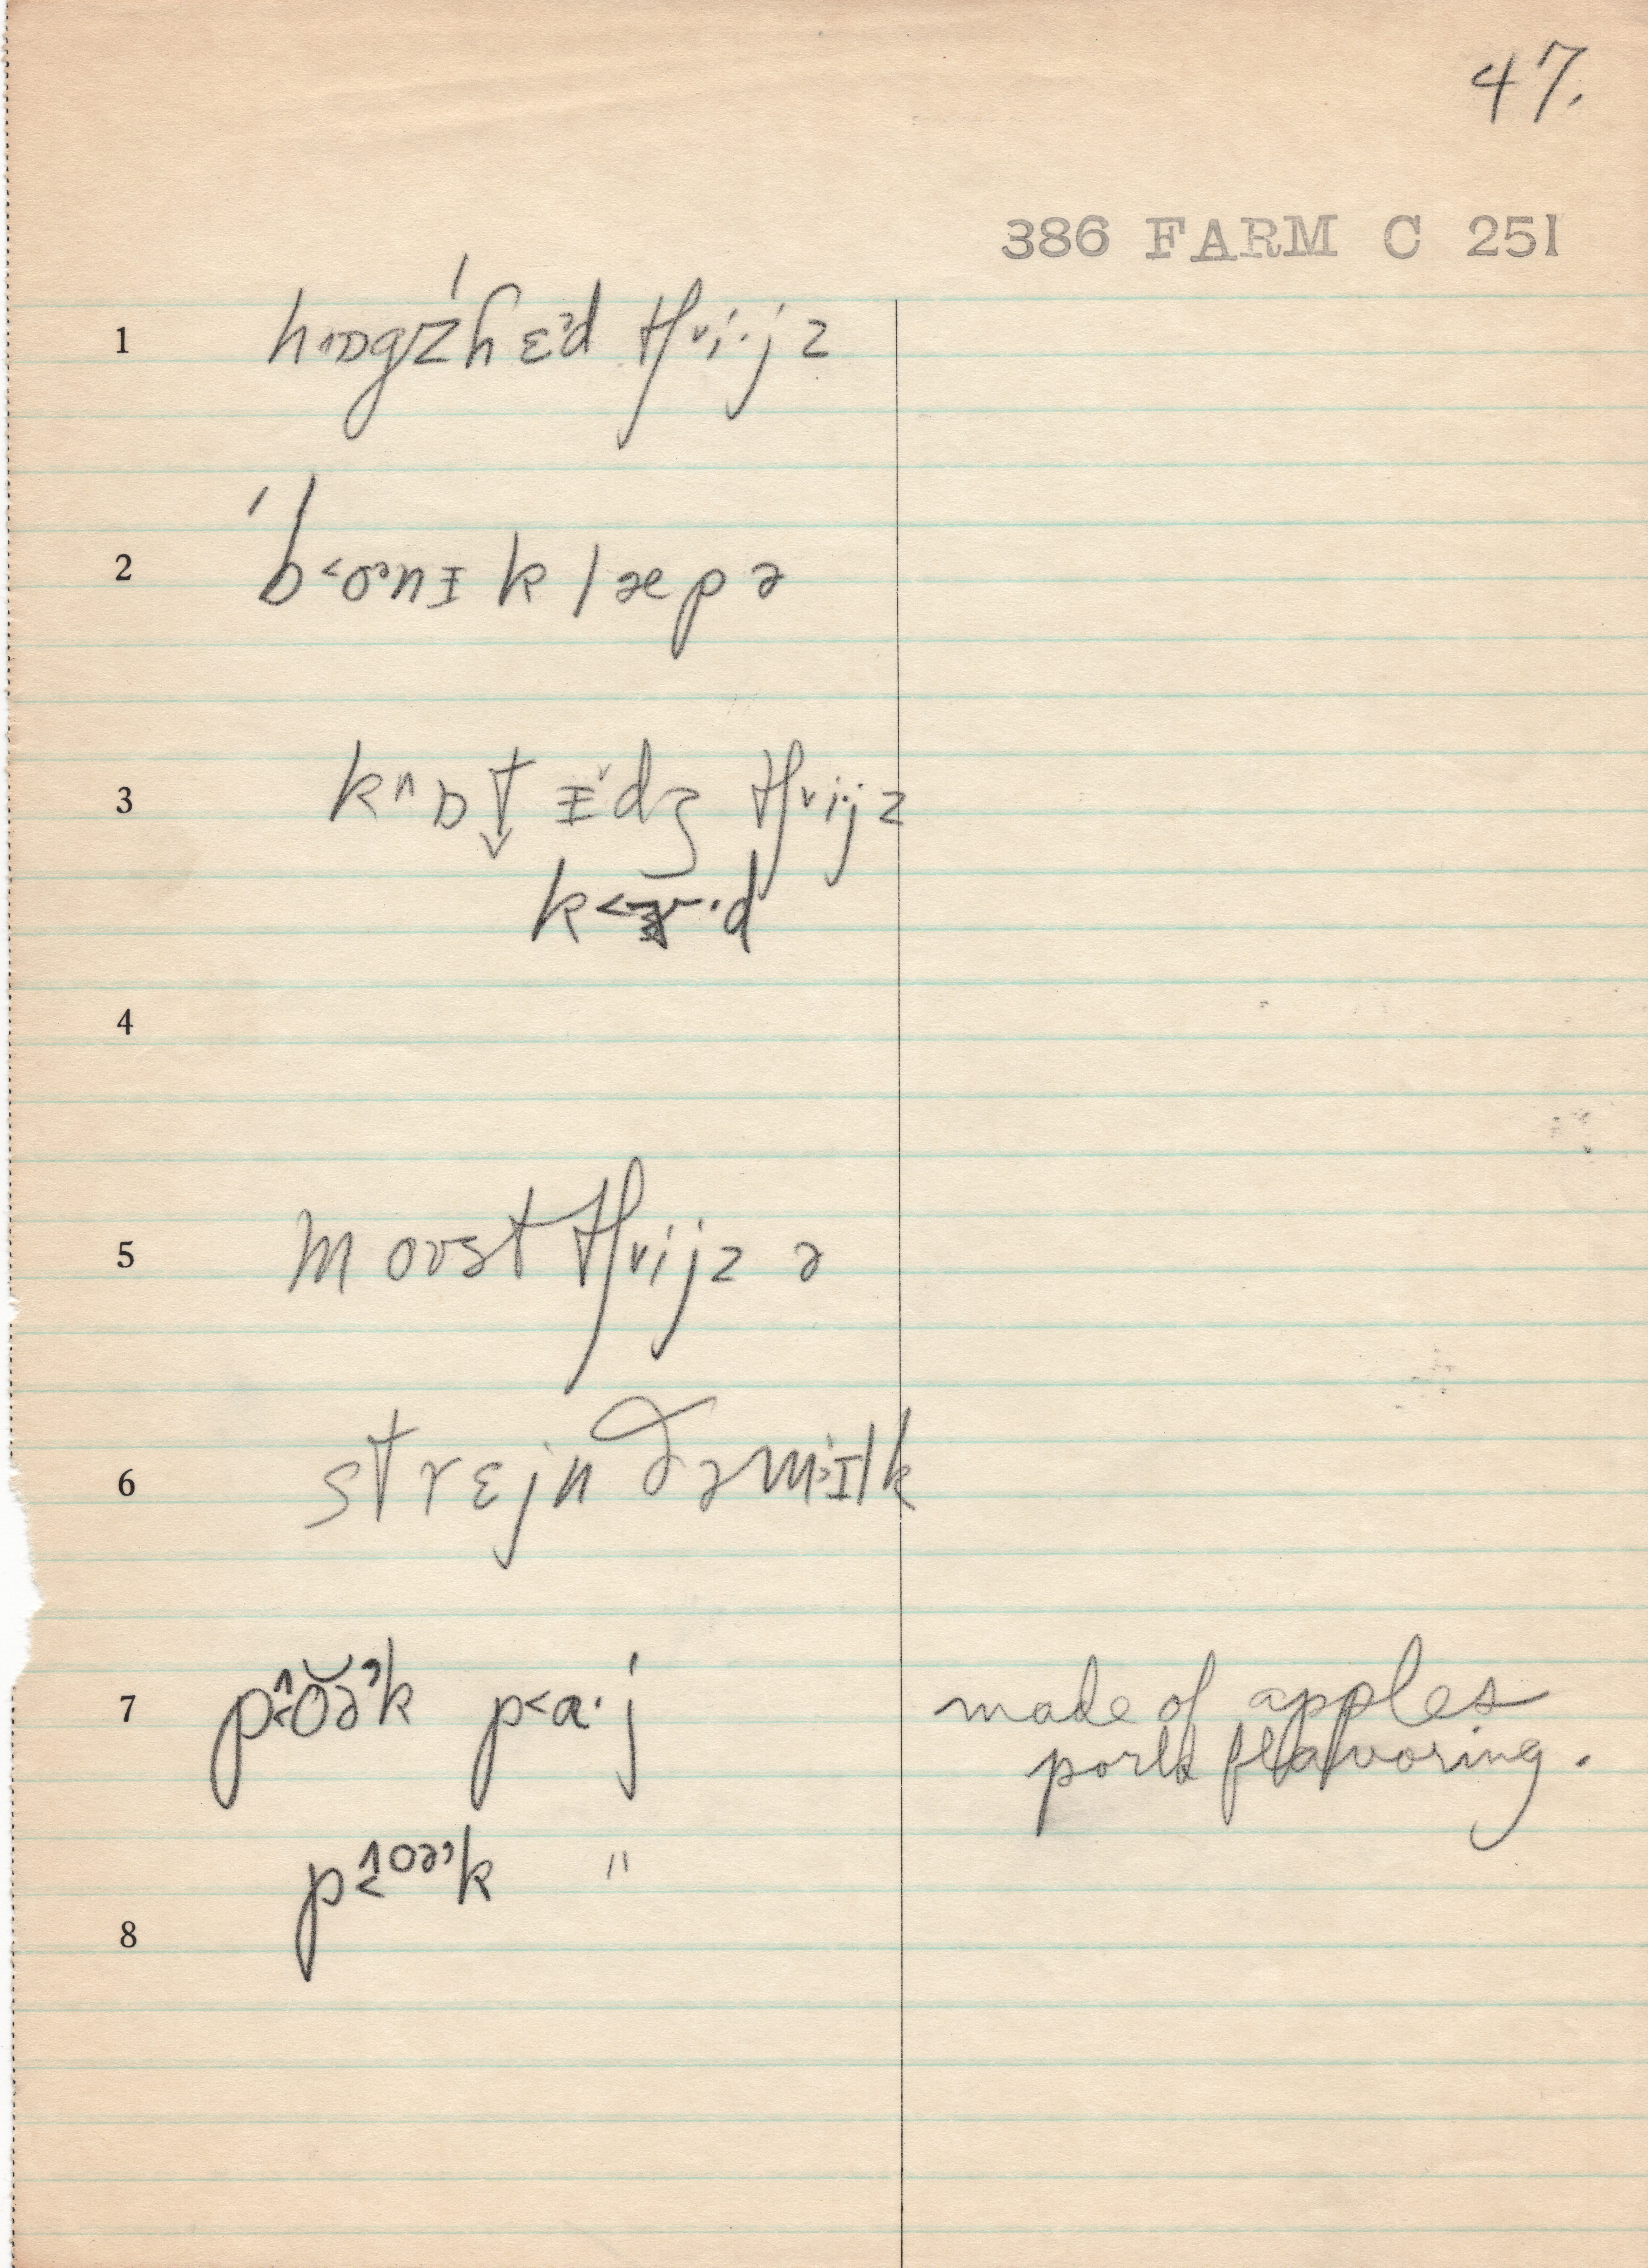 47.
386 FARM C 251
1 h˄ɒgzˈhɛᵊd tʃ˅i·jz
2 ˈb˂oᵊnɪ klæpə
3 k˄ɒt̬ ɪ˅dʒ tʃ˅i·jz
k˂ɝ·d
4
5 moʊst tʃ˅ijz ə
6 strɛjn ðə m˃ɪlk
7 p˂˄ŏə˒k p˂a·j made of apples
pork flavoring.
p˂˄oə˒k "
8